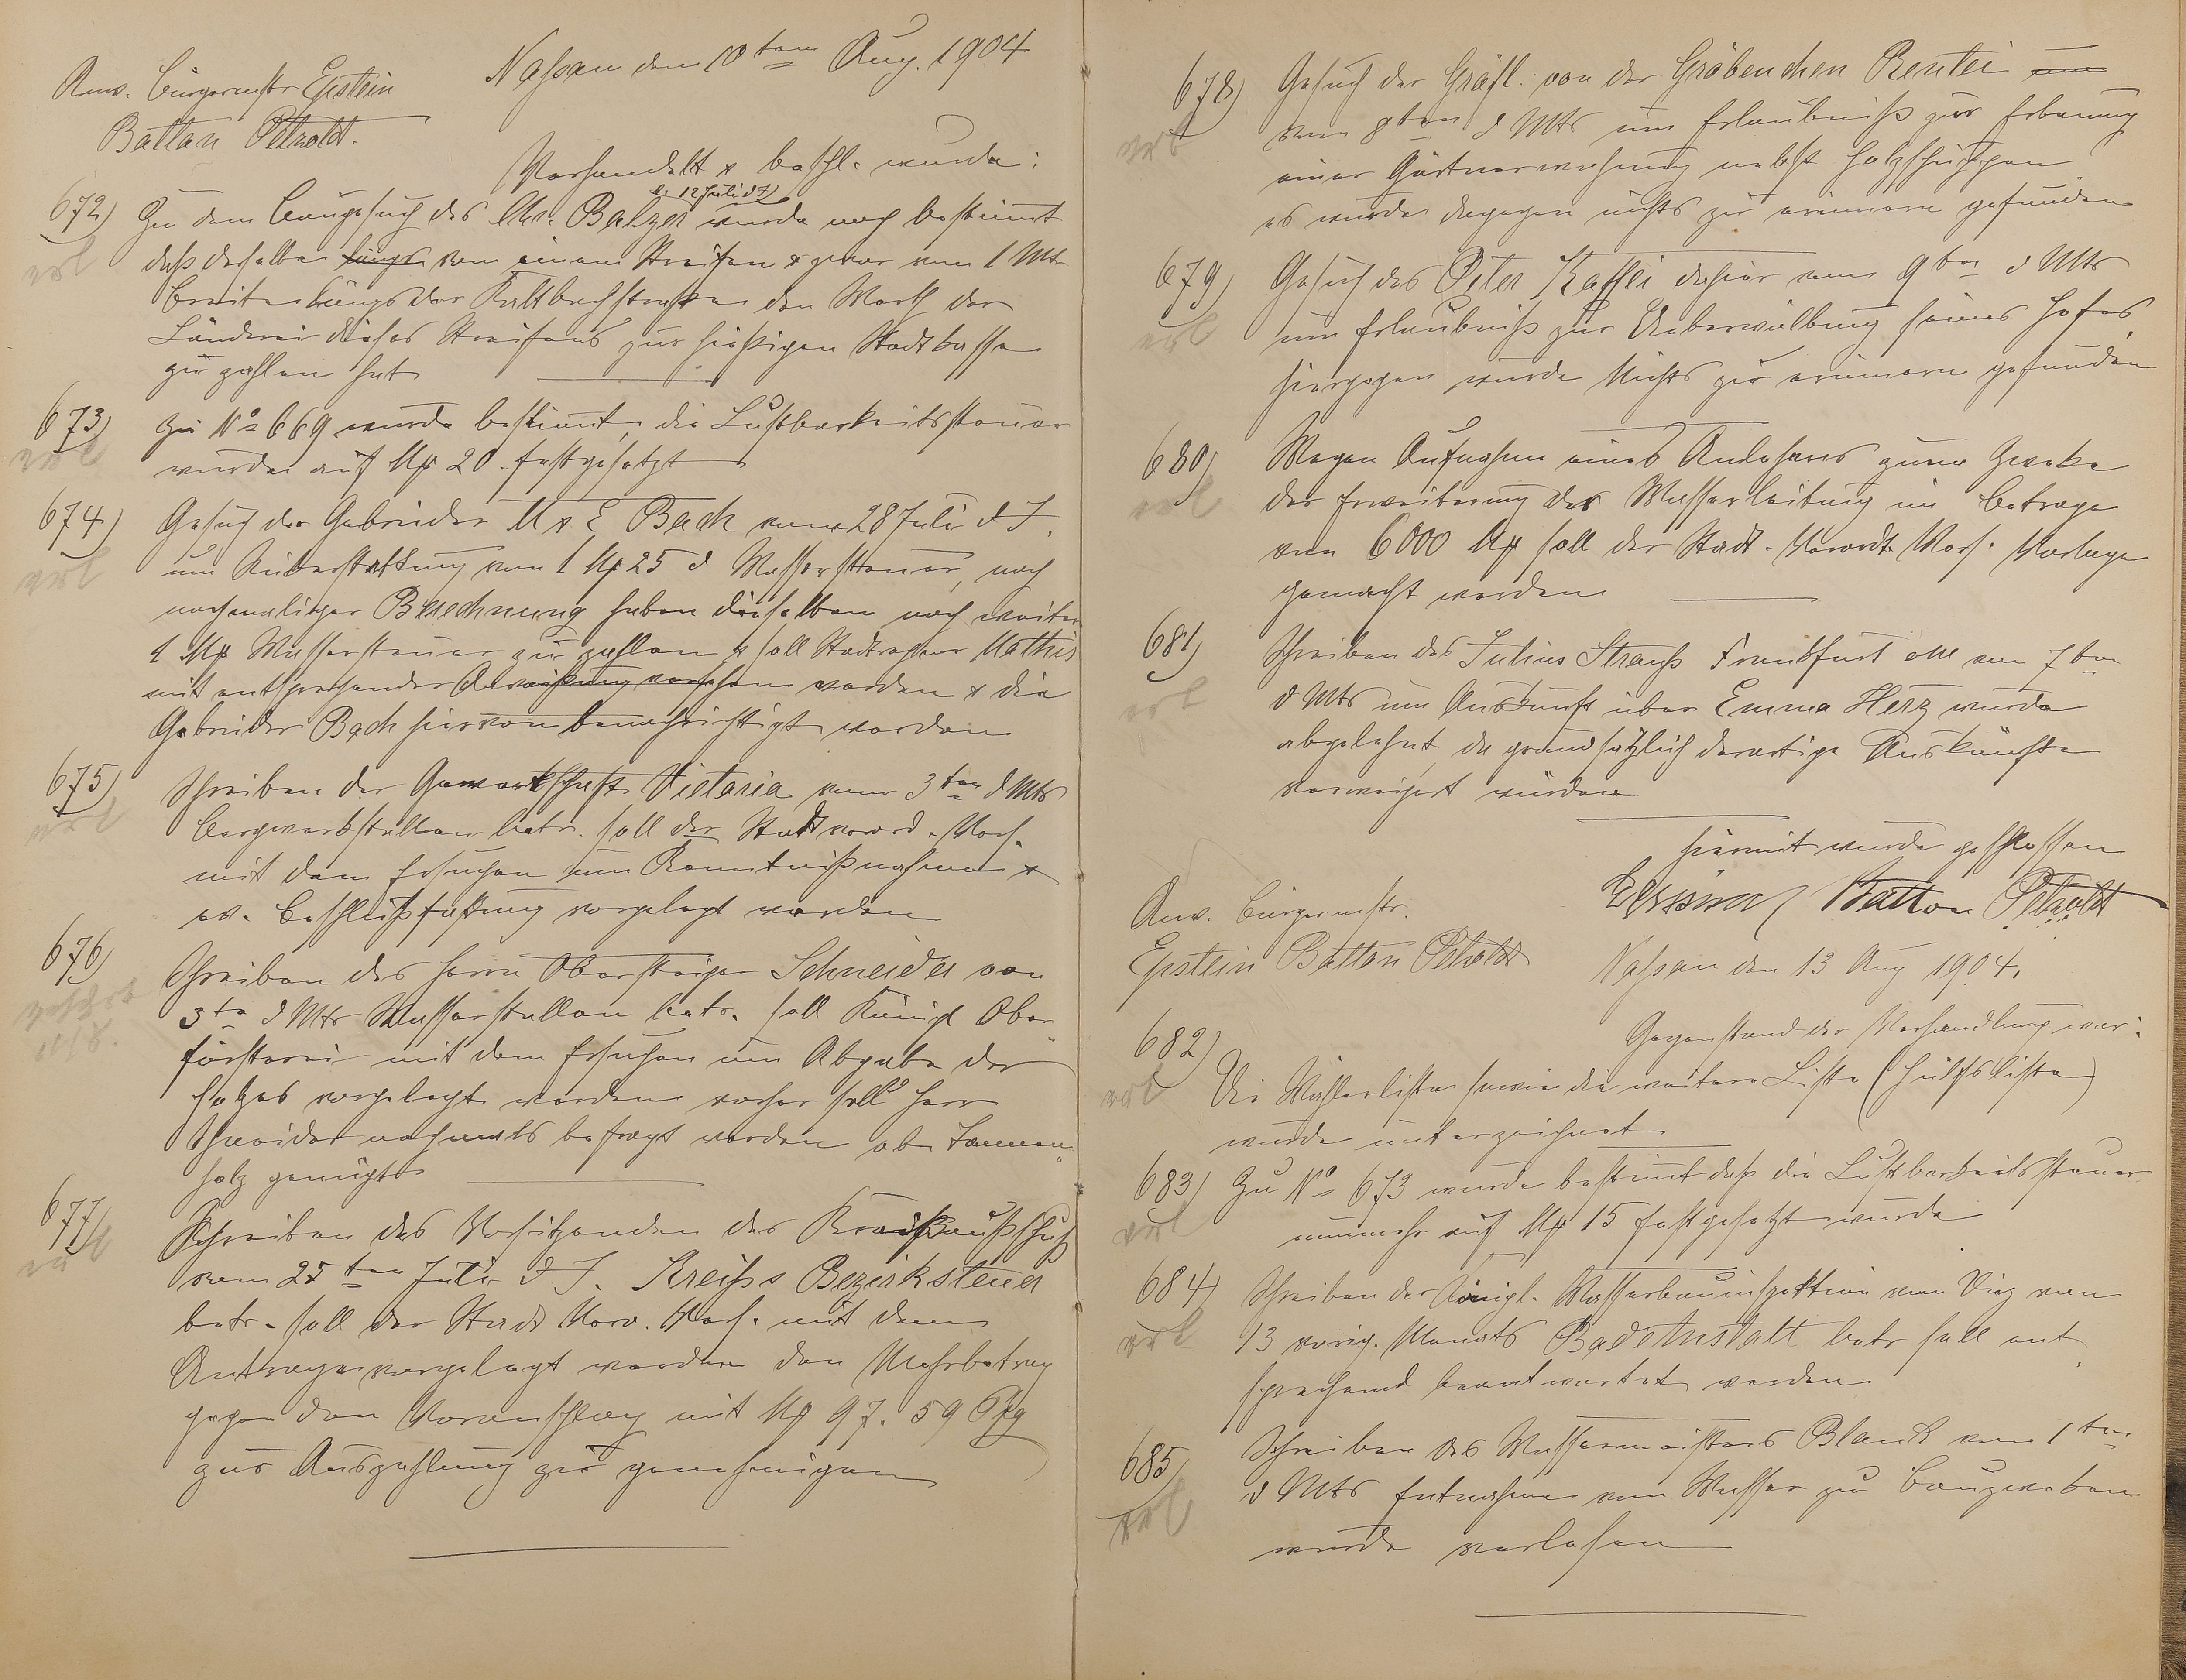 Nassau den 10ten Aug. 1904
Anw. Bürgermstr Epstein
Batton Petzold.
Verhandelt & beschl. wurde:
v. 12 Juli d J
672) Zu dem Baugesuch des Chr. Balzer wurde noch bestimmt
erl
daß derselbe längs von einem Streifen & zwar von 1 Mtr
Breite längs der Kaltbachstrasse den Werth der
Länderei dieses Streifens zur hiesigen Stadtkasse
zu zahlen hat
673) Zu No 669 wurde bestimmt, die Lustbarkeitssteuer
erl
wurde auf Mk 20. festgesetzt
674) Gesuch der Gebrüder M & E Bach vom 28 Juli d J.
erl
um Rückerstattung von 1 Mk 25 d Wassersteuer, nach
nochmaliger Berechnung haben dieselben noch weiter
1 Mk Wassersteuer zu zahlen & soll Stadtrechner Mathis
mit entsprechender Anweisung versehen werden & die
Gebrüder Bach hiervon benachrichtigt werden
675) Schreiben der Gewerkschaft Victoria vom 3ten d Mts
erl
Bergwerkstollen betr. soll der Stadtverord. Vers.
mit dem Ersuchen um Kenntnißnahme &
ev. Beschlußfassung vorgelegt werden
676) Schreiben des Herrn Obersteiger Schneider von
3ten d Mts Wasserstollen betr. soll Königl Ober-
försterei mit dem Ersuchen um Abgabe des
Holzes vorgelegt werden vorher soll Herr
Schneider nochmals befragt werden ob Tannen-
holz genügt
677) Schreiben des Vorsitzenden des Kreisausschuß
erl
vom 25ten Juli d J. Kreiss Bezirksteuer
betr. soll der Stadt Verord. Vers. mit dem
Antrage vorgelegt werden den Mehrbetrag
gegen den Voranschlag mit Mk 97. 59 Pfg
zur Auszahlung zu genehmigen
678) Gesuch der Gräfl. von der Gröbenchen Rentei um
erl
vom 8ten d Mts um Erlaubniß zur Erbauung
einer Gärtnerwohnung nebst Holzschuppen
es wurde dagegen nichts zu erinnern gefunden
679) Gesuch des Peter Kaffei dahier vom 9ten d Mts
erl
um Erlaubniß zur Ueberwölbung seines Hofes
hiergegen wurde Nichts zu erinnern gefunden
680) Wegen Aufnahme eines Anlehens zum Zwecke
erl
der Erweiterung der Wasserleitung im Betrage
von 6000 Mk soll der Stadt-Verordt. Vers. Vorlage
gemacht werden
681) Schreiben des Julius Strauss Frankfurt a/M vom 7ten
erl
d Mts um Auskunft über Emma Herz wurde
abgelehnt, da grundsätzlich derartige Auskünfte
verweigert würden
Hiermit wurde geschlossen
Epstein Batton Petzold
Anw. Bürgermstr.
Epstein Batton Petzold
Nassau den 13 Aug 1904.
Gegenstand der Verhandlung war:
682)
erl
Die Wählerliste sowie die weitere Liste (Hülfsliste)
wurde unterzeichnet
683) Zu No 673 wurde bestimmt daß die Lustbarkeitssteuer
erl
nunmehr auf Mk 15 festgesetzt wurde
684) Schreiben der Königl. Wasserbauinspektion von Diez vom
erl
13 vorig. Monats BadeAnstalt betr soll ent-
sprechend beantwortet werden
685) Schreiben des Wassermeisters Blank vom 1ten
erl
d Mts Entnahme von Wasser zu Bauzwecken
wurde verlesen